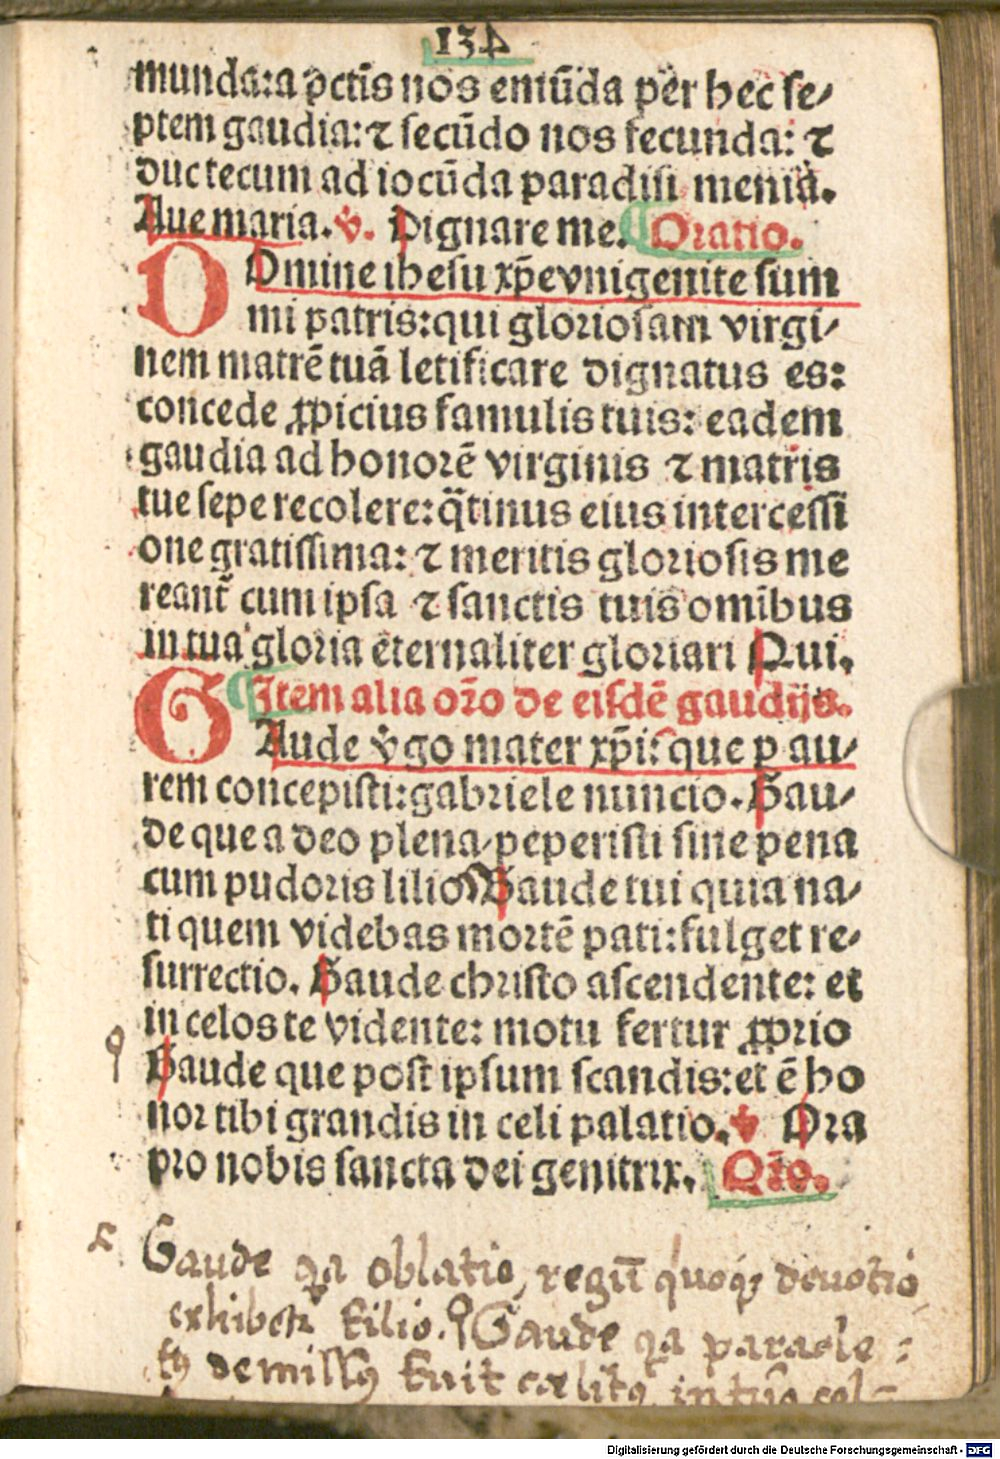 134
munda:a pctīs nos emūda per hec se/
ptem gaudia: ⁊ secūdo nos fecunda: ⁊
duc tecum ad iocūda paradisi menia.
Aue maria. ꝟ. Dignare me. Oratio.
DOmine ihesu xp̄e vnigenite sum
mi patris: qui gloriosam virgi/
nem matrē tuā letificare dignatus es:
concede ꝓpicius famulis tuis: eadem
gaudia ad honorē virginis ⁊ matris
tue sepe recolere: q̄tinus eius intercessi
one gratissima: ⁊ meritis gloriosis me
reant̄ cum ipsa ⁊ sanctis tuis omībus
in tua gloria eternaliter gloriari Qui.
Item alia or̄o de eisdē gaudijs.
GAude ꝟgo mater xp̄i: que p au/
rem concepisti: gabriele nuncio. Gau/
de que a deo plena/ peperisti sine pena
cum pudoris lilio Gaude tui quia na/
ti quem videbas mortē pati: fulget re/
surrectio. Gaude christo ascendente: et
in celos te vidente: motu fertur ꝓprio
Gaude que post ipsum scandis: et ē ho
nor tibi grandis in celi palatio. ꝟ Ora
pro nobis sancta dei genitrix. Or̄o.
Gaude qa oblatio, regū quoqȝ deuotio
exhibetr filio. Gaude qa paracle :
tꝰ demissꝰ fuit cœlitꝰ in tuo col-
Digitalisierung gefördert durch die Deutsche Forschungsgemeinschaft - DFG